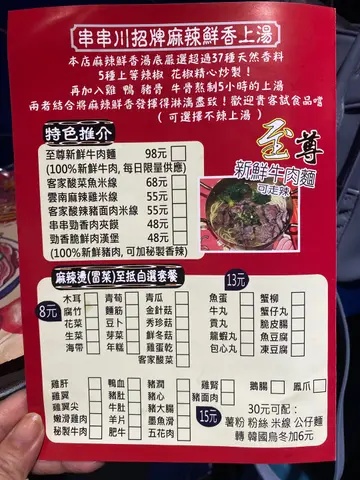 串串川招牌麻辣鮮香上湯
本店麻辣鮮香湯底嚴選超過37種天然香料
5種上等辣椒 花椒精心炒製！
再加入雞 鴨 豬骨 牛骨熬制5小時的上湯
兩者結合將麻辣鮮香發揮得淋漓盡致！歡迎貴客試食品嚐
（可選擇不辣上湯）
特色推介
至尊新鮮牛肉麵 98元
(100%新鮮牛肉, 每日限量供應)
客家酸菜魚米線 68元
雲南麻辣雞米線 55元
客家酸辣豬面肉米線 55元
串串勁香肉夾饃 48元
勁香脆鮮肉漢堡 48元
(100%新鮮豬肉, 可加秘製香辣)
至尊
新鮮牛肉麵
可走辣
麻辣燙(冒菜)至抵自選套餐
8元
木耳 青筍 青瓜
腐竹 麵筋 金針菇
花菜 豆卜 秀珍菇
生菜 芽菜 鮮冬菇
海帶 年糕 雞蛋乾
客家酸菜
13元
魚蛋 蟹柳
牛丸 蟹仔丸
貢丸 脆皮腸
龍蝦丸 魚豆腐
包心丸 凍豆腐
雞肝 鴨血 豬潤 雞腎 鵝腸 鳳爪
雞翼 豬肚 豬心 豬面肉
雞翼尖 牛肚 豬大腸
嫩滑雞肉 羊片 墨魚滑
秘製牛肉 肥牛 五花肉
15元
30元可配：
薯粉 粉絲 米線 公仔麵
轉 韓國烏冬加6元